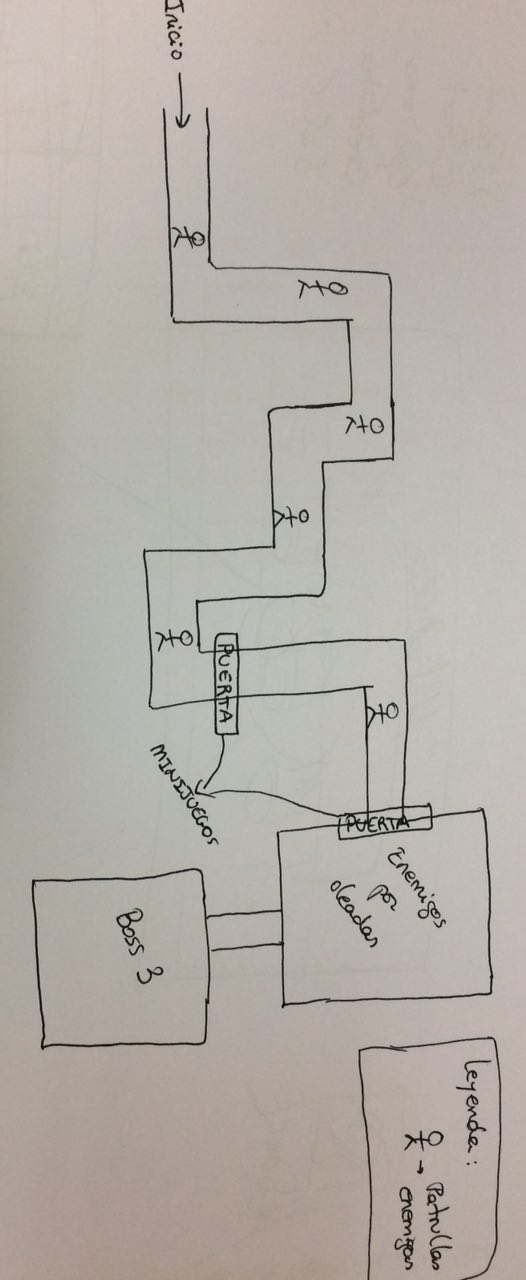 Inicio →
PUERTA
MINIJUEGOS
PUERTA
Enemigos
por
oleadas
Boss 3
Leyenda:
→ Patrullas
enemigas